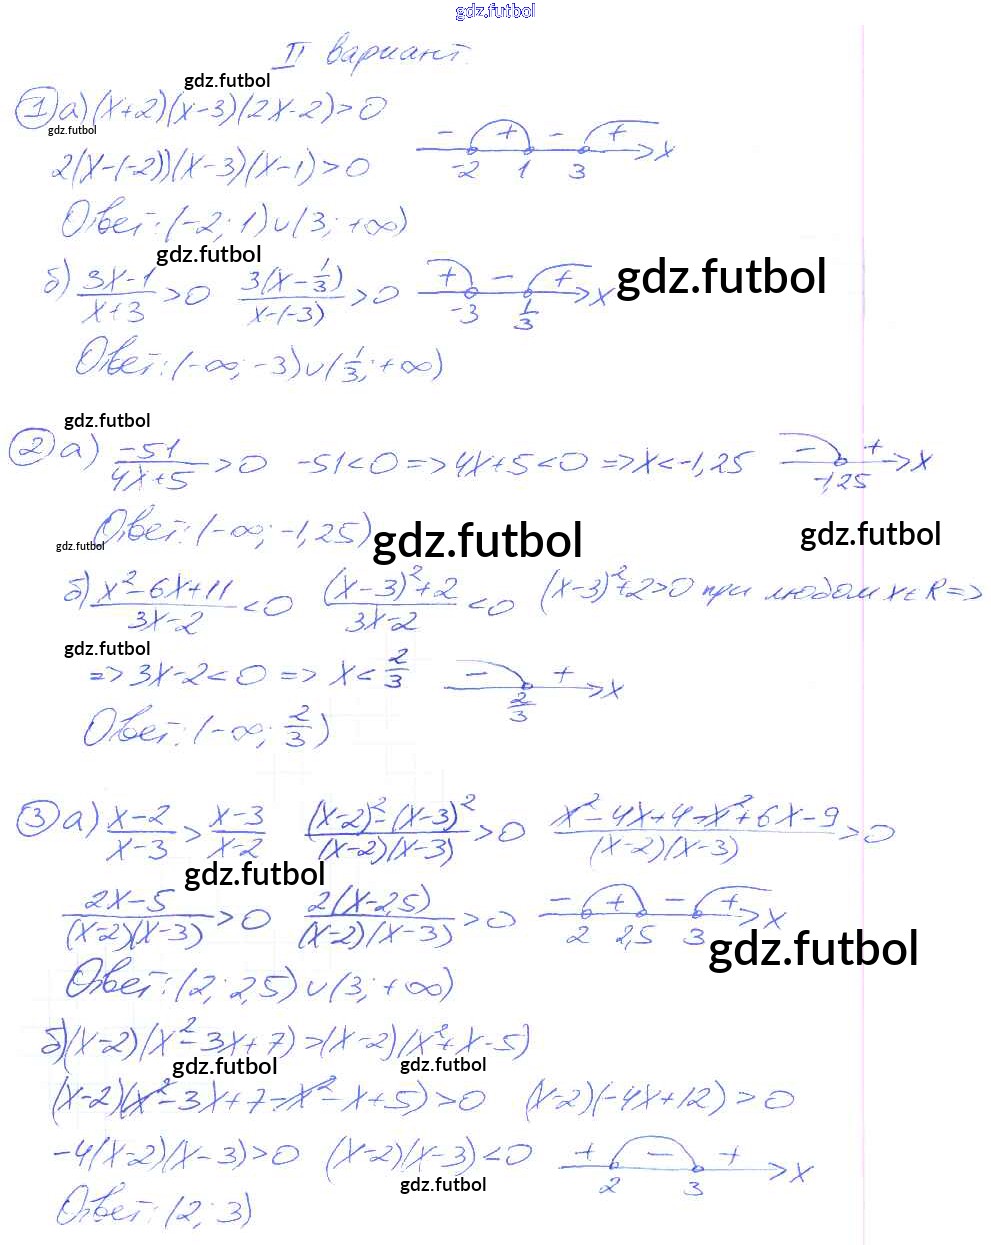 gdz.futbol
II вариант.
gdz.futbol
1) а) (x+2)(x-3)(2x-2)>0
gdz.futbol
- + - +
2(x-(-2))(x-3)(x-1)>0 -2 1 3 x
Ответ: (-2; 1)∪(3; +∞)
gdz.futbol
б) (3x-1)/(x+3)>0 3(x-1/3)/(x-(-3))>0 + - + -3 1/3 x gdz.futbol
Ответ: (-∞; -3)∪(1/3; +∞)
gdz.futbol
2) а) -51/(4x+5)>0 -51<0 => 4x+5<0 => x<-1,25 - + -1,25 x
Ответ: (-∞; -1,25) gdz.futbol gdz.futbol
gdz.futbol
б) (x²-6x+11)/(3x-2)<0 ((x-3)²+2)/(3x-2)<0 (x-3)²+2>0 при любом x∈R =>
gdz.futbol
=> 3x-2<0 => x<2/3 - + 2/3 x
Ответ: (-∞; 2/3)
3) а) (x-2)/(x-3)>(x-3)/(x-2) ((x-2)²-(x-3)²)/((x-2)(x-3))>0 (x²-4x+4-x²+6x-9)/((x-2)(x-3))>0
gdz.futbol
(2x-5)/((x-2)(x-3))>0 2(x-2,5)/((x-2)(x-3))>0 - + - + 2 2,5 3 x
gdz.futbol
Ответ: (2; 2,5)∪(3; +∞)
б) (x-2)(x²-3x+7)>(x-2)(x²+x-5)
gdz.futbol gdz.futbol
(x-2)(x²-3x+7-x²-x+5)>0 (x-2)(-4x+12)>0
-4(x-2)(x-3)>0 (x-2)(x-3)<0 + - + 2 3 x
gdz.futbol
Ответ: (2; 3)